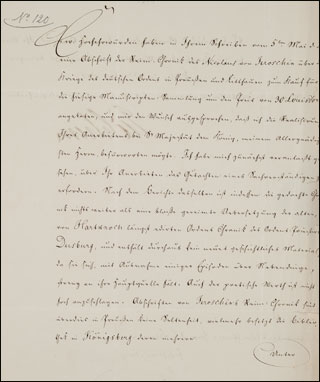 No 120.
Eure Hochehrwürden haben in Ihrem Schreiben vom 5ten Mai d. J.
eine Abschrift der Reim-Chronik des Nicolaus von Jeroschin über
Kriege des deutschen Ordens in Preußen und Litthauen zum Kauf für
die hiesige Manuscripten Sammlung um den Preis von 30 Louisdor
angeboten, und mir den Wunsch ausgesprochen, daß ich die Realisirung
Ihres Anerbietens bei Sr Majestät dem König, meinem Allergnädig
sten Herrn befürworten möge. Ich habe mich zunächst veranlaßt ge
sehen, über Ihr Anerbieten das Gutachten eines Sachverständigen zu
erfordern. Nach dem Berichte desselben ist indessen die gedachte Chro
nik nichts weiter als eine bloße gereimte Uebersetzung der alten,
von Hartknoch längst edirten Ordens Chronik des Ordens
Dusburg, und enthält durchaus kein neues geschichtliches Material,
da sie sich, mit Ausnahme einiger Episoden über Nebendinge,
streng an ihre Hauptquelle hält. Auch der poetische Werth ist nicht
hoch anzuschlagen. Abschriften von Jeroschins Reim-Chronik sind
überdies in Preußen keine Seltenheit, vielmehr besitzt die Biblio
thek in Königsberg deren mehrere.
Unter